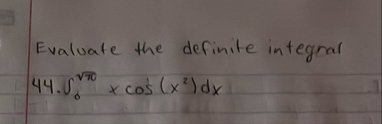 Evaluate the definite integral
44. ∫₀^√π x cos(x²)dx